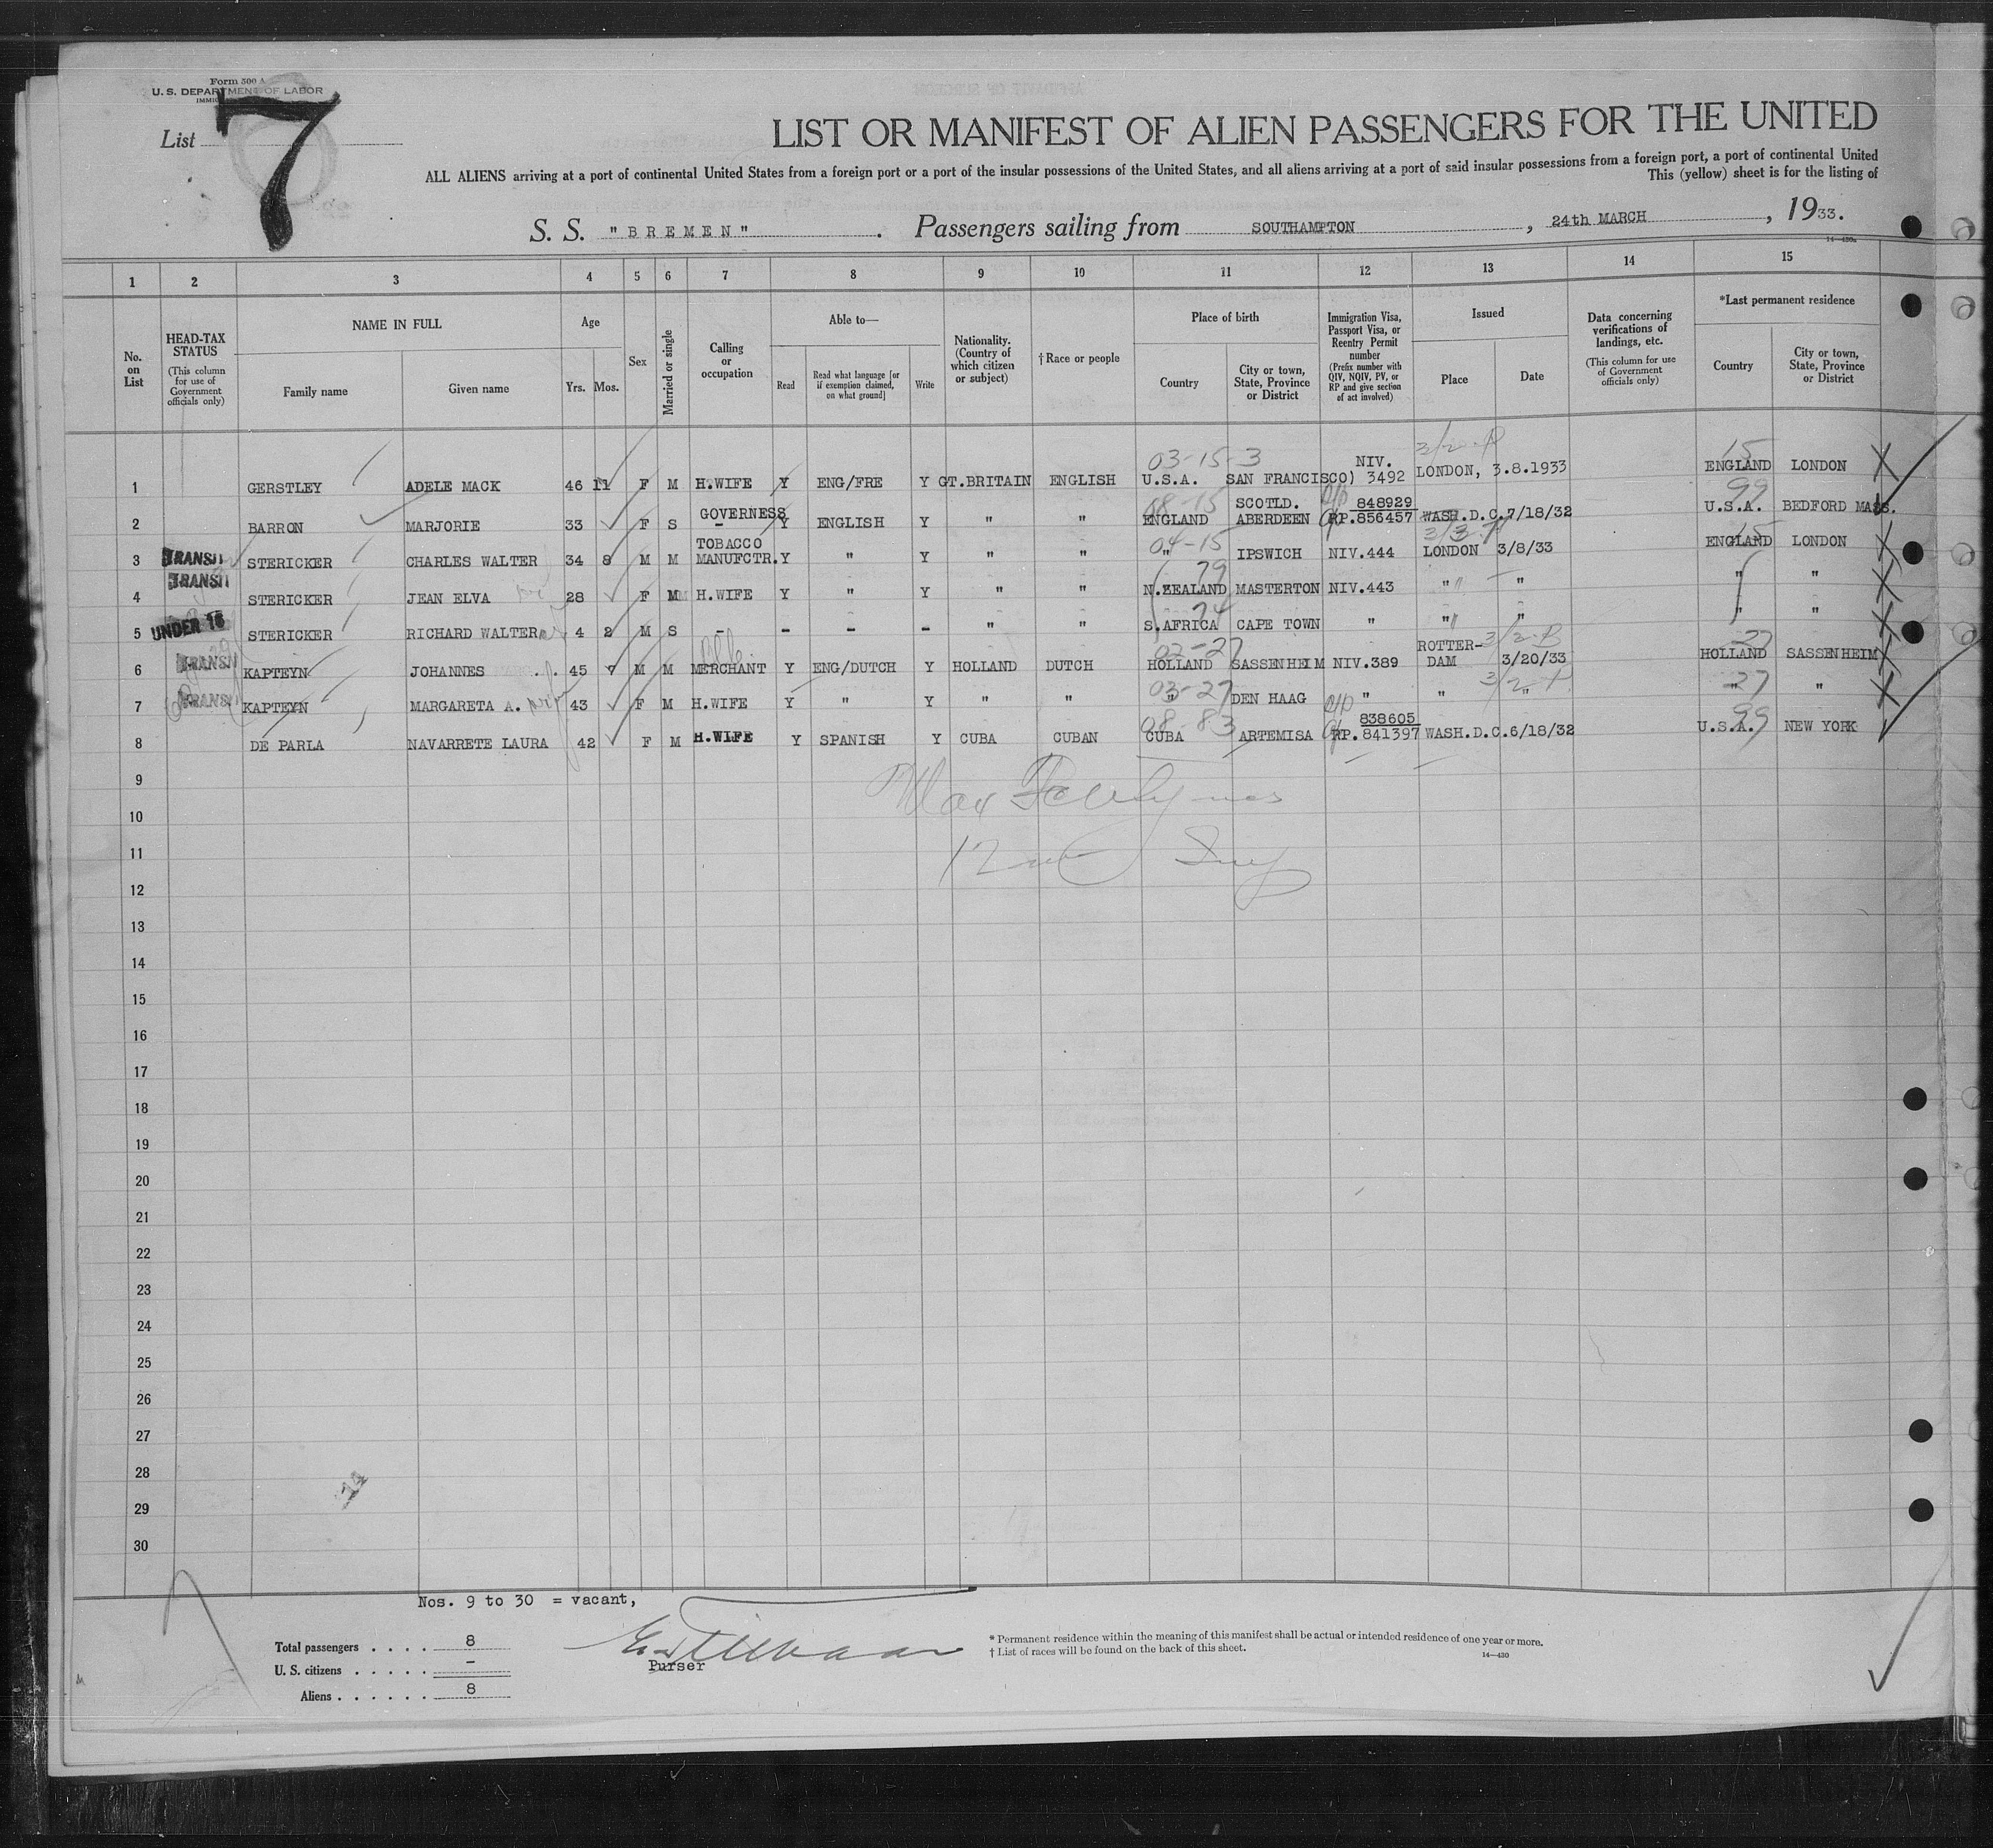 Form 500 A
U. S. DEPARTMENT OF LABOR
List 7
LIST OR MANIFEST OF ALIEN PASSENGERS FOR THE UNITED
ALL ALIENS arriving at a port of continental United States from a foreign port or a port of the insular possessions of the United States, and all aliens arriving at a port of said insular possessions from a foreign port, a port of continental United
This (yellow) sheet is for the listing of
S. S. "BREMEN". Passengers sailing from SOUTHAMPTON, 24th MARCH, 1933.
14—430
1 2 3 4 5 6 7 8 9 10 11 12 13 14 15
No. on List
HEAD-TAX STATUS (This column for use of Government officials only)
NAME IN FULL
Family name
Given name
Age
Yrs. Mos.
Sex
Married or single
Calling or occupation
Able to—
Read
Read what language [or if exemption claimed, on what ground]
Write
Nationality. (Country of which citizen or subject)
†Race or people
Place of birth
Country
City or town, State, Province or District
Immigration Visa, Passport Visa, or Reentry Permit number (Prefix number with QIV, NQIV, PV, or RP and give section of act involved)
Issued
Place
Date
Data concerning verifications of landings, etc. (This column for use of Government officials only)
*Last permanent residence
Country
City or town, State, Province or District
03-15-3 15
1 GERSTLEY ADELE MACK 46 11 F M H.WIFE Y ENG/FRE Y GT.BRITAIN ENGLISH U.S.A. SAN FRANCISCO) NIV. 3492 LONDON, 3.8.1933 ENGLAND LONDON
08-15 99
2 BARRON MARJORIE 33 F S GOVERNESS - Y ENGLISH Y " " ENGLAND SCOTLD. ABERDEEN 848929 RP.856457 WASH.D.C.7/18/32 U.S.A. BEDFORD MASS.
04-15 15
3 TRANSIT STERICKER CHARLES WALTER 34 8 M M TOBACCO MANUFCTR. Y " Y " " " IPSWICH NIV.444 LONDON 3/8/33 ENGLAND LONDON
79
4 TRANSIT STERICKER JEAN ELVA 28 F M H.WIFE Y " Y " " N.ZEALAND MASTERTON NIV.443 " " " "
74
5 UNDER 16 STERICKER RICHARD WALTER 4 2 M S - - - - " " S.AFRICA CAPE TOWN " " " " "
02-27 27
6 TRANSIT KAPTEYN JOHANNES 45 9 M M MERCHANT Y ENG/DUTCH Y HOLLAND DUTCH HOLLAND SASSENHEIM NIV.389 ROTTER-DAM 3/20/33 HOLLAND SASSENHEIM
03-27 27
7 TRANSIT KAPTEYN MARGARETA A. 43 F M H.WIFE Y " Y " " " DEN HAAG " " " " "
08-83 99
8 DE PARLA NAVARRETE LAURA 42 F M H.WIFE Y SPANISH Y CUBA CUBAN CUBA ARTEMISA 838605 RP.841397 WASH.D.C.6/18/32 U.S.A. NEW YORK
9
10
11
12
13
14
15
16
17
18
19
20
21
22
23
24
25
26
27
28
29
30
Nos. 9 to 30 = vacant,
Total passengers . . . . 8
U. S. citizens . . . . . -
Aliens . . . . . . 8
Purser
* Permanent residence within the meaning of this manifest shall be actual or intended residence of one year or more.
† List of races will be found on the back of this sheet.
14—430